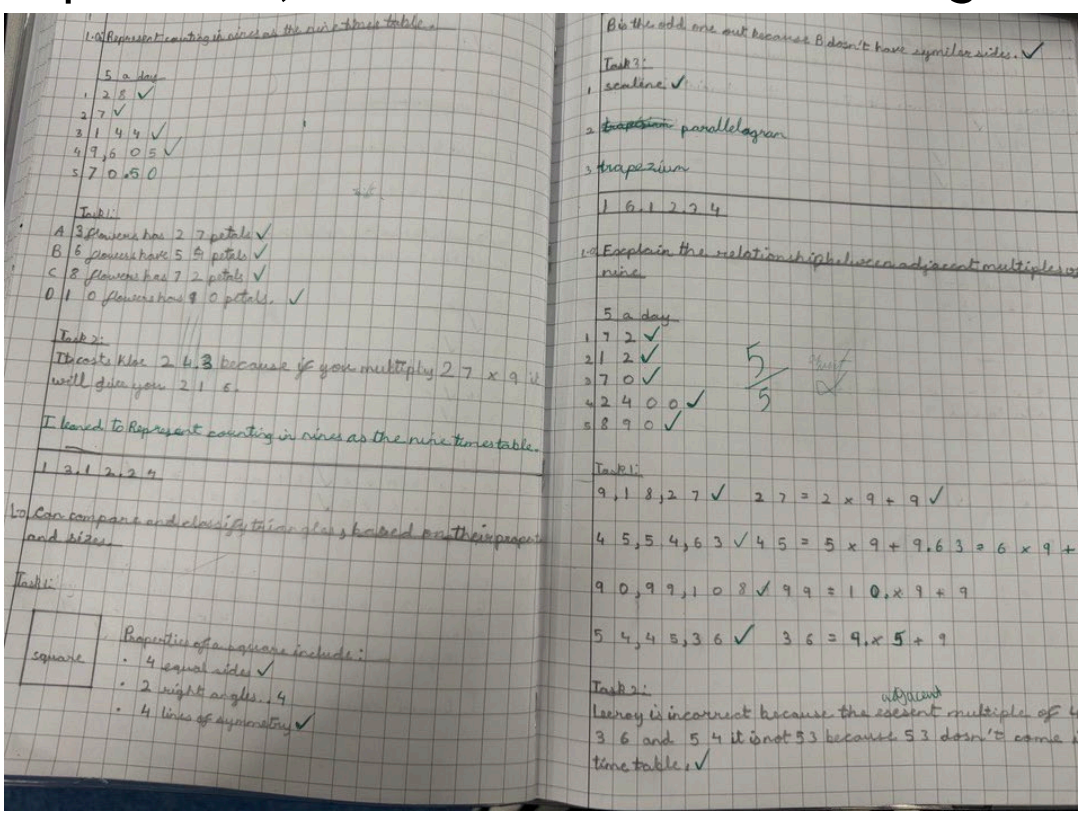 1.a) Represent counting in nines as the nine times table.
5 a day
1 28 ✓
2 7 ✓
3 144 ✓
4 9,605 ✓
5 70.50
Task 1:
A 3 flowers has 27 petals ✓
B 6 flowers have 54 petals ✓
C 8 flowers has 72 petals ✓
D 10 flowers has 90 petals. ✓
Task 2:
It costs Kloe 243 because if you multiply 27 x 9 it
will give you 216.
I leaned to Represent counting in nines as the nine times table.
13.12.24
L.o Can compare and classify triangles, based on their propert
and sizes.
Task 1:
square
Properties of a square include:
• 4 equal sides ✓
• 2 right angles. 4
• 4 lines of symmetry ✓
B is the odd one out because B doesn't have symilar sides. ✓
Task 3:
1 scaline ✓
2 trapezium parallelogran
3 trapezium
16.12.24
Explain the relationship between adjacent multiples of
nine
5 a day
1 72 ✓
2 12 ✓
3 70 ✓
4 2400 ✓
5 890 ✓
5/5
Task 1:
9,18,27 ✓ 27 = 2 x 9 + 9 ✓
45,54,63 ✓ 45 = 5 x 9 + 9.63 = 6 x 9 +
90,99,108 ✓ 99 = 10 x 9 + 9
54,45,36 ✓ 36 = 9 x 5 + 9
Task 2:
adjacent
Leeroy is incorrect because the multiple of 4
36 and 54 it is not 53 because 53 dosn't come
time table. ✓